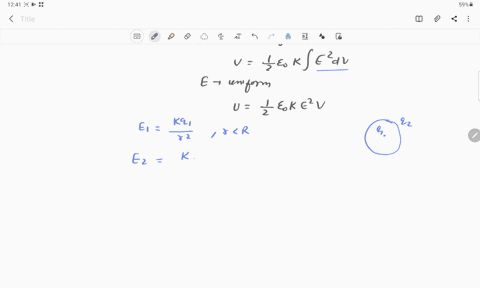 12:41
59%
Title
U = 1/2 ε₀ K ∫ E² dV
E → uniform
U = 1/2 ε₀ K E² V
E₁ = Kq₁/r² , r < R
q₁ q₂
E₂ = K